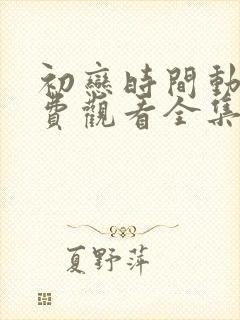 初戀時間動
費觀看全集
夏野萍